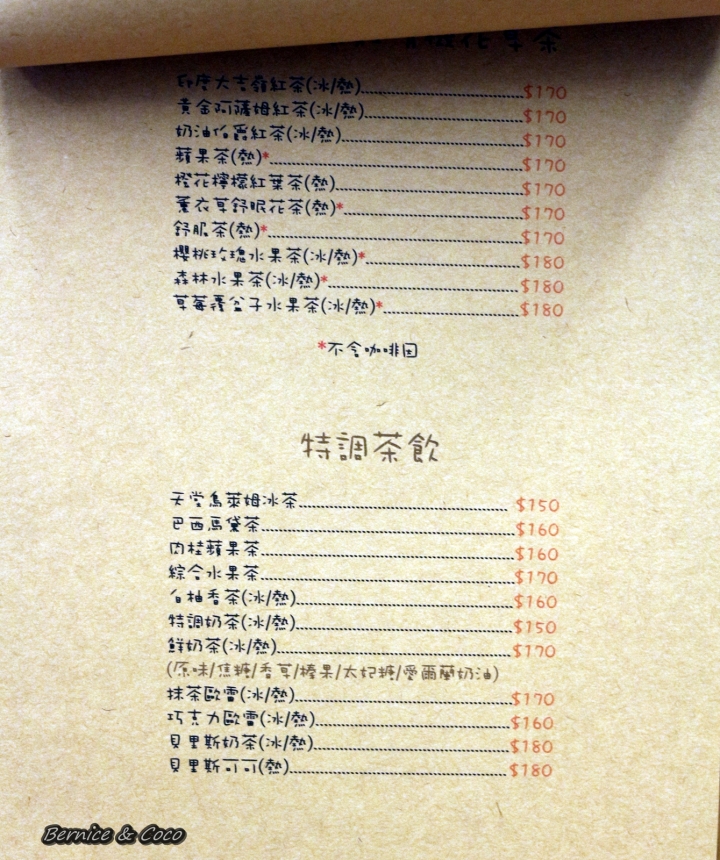 花草茶
印度大吉嶺紅茶(冰/熱)$170
黃金阿薩姆紅茶(冰/熱)$170
奶油伯爵紅茶(冰/熱)$170
蘋果茶(熱)*$170
橙花檸檬紅葉茶(熱)$170
薰衣草舒眠花茶(熱)*$170
舒服茶(熱)*$170
櫻桃玫瑰水果茶(冰/熱)*$180
森林水果茶(冰/熱)*$180
草莓覆盆子水果茶(冰/熱)*$180
*不含咖啡因
特調茶飲
天堂烏萊姆冰茶$150
巴西馬黛茶$160
肉桂蘋果茶$160
綜合水果茶$170
白柚香茶(冰/熱)$160
特調奶茶(冰/熱)$150
鮮奶茶(冰/熱)$170
(原味/焦糖/香草/榛果/太妃糖/愛爾蘭奶油)
抹茶歐蕾(冰/熱)$170
巧克力歐蕾(冰/熱)$160
貝里斯奶茶(冰/熱)$180
貝里斯可可(熱)$180
Bernice & Coco